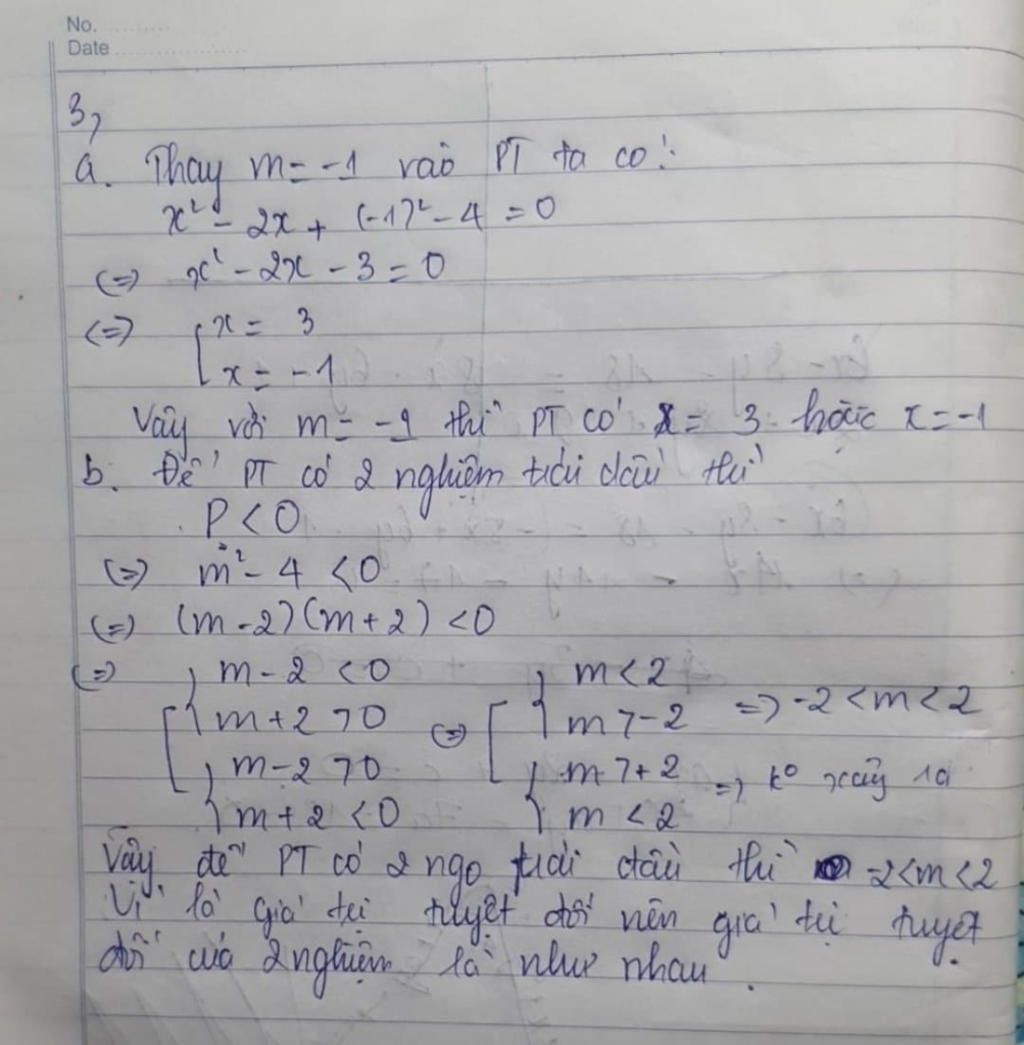 No.
Date
3,
a. Thay m = -1 vào PT ta có:
x² - 2x + (-1)² - 4 = 0
<=> x² - 2x - 3 = 0
<=> [ x = 3
x = -1
Vậy với m = -1 thì PT có x = 3 hoặc x = -1
b. Để PT có 2 nghiệm trái dấu thì
P < 0
<=> m² - 4 < 0
<=> (m - 2)(m + 2) < 0
<=> [ { m - 2 < 0 <=> [ { m < 2 => -2 < m < 2
m + 2 > 0 m > -2
{ m - 2 > 0 { m > +2 => k° xảy ra
m + 2 < 0 m < 2
Vậy để PT có 2 ngo trái dấu thì -2 < m < 2
Vì là giá trị tuyệt đối nên giá trị tuyệt
đối của 2 nghiệm là như nhau.